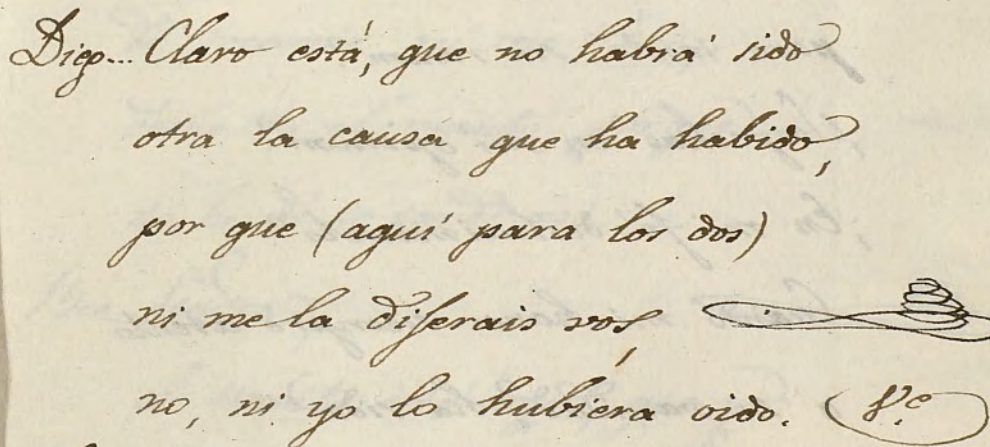 Diego... Claro está, que no habrá sido
otra la causa que ha habido,
por que (aquí para los dos)
ni me la diferais vos,
no, ni yo lo hubiera oido. (Ve.